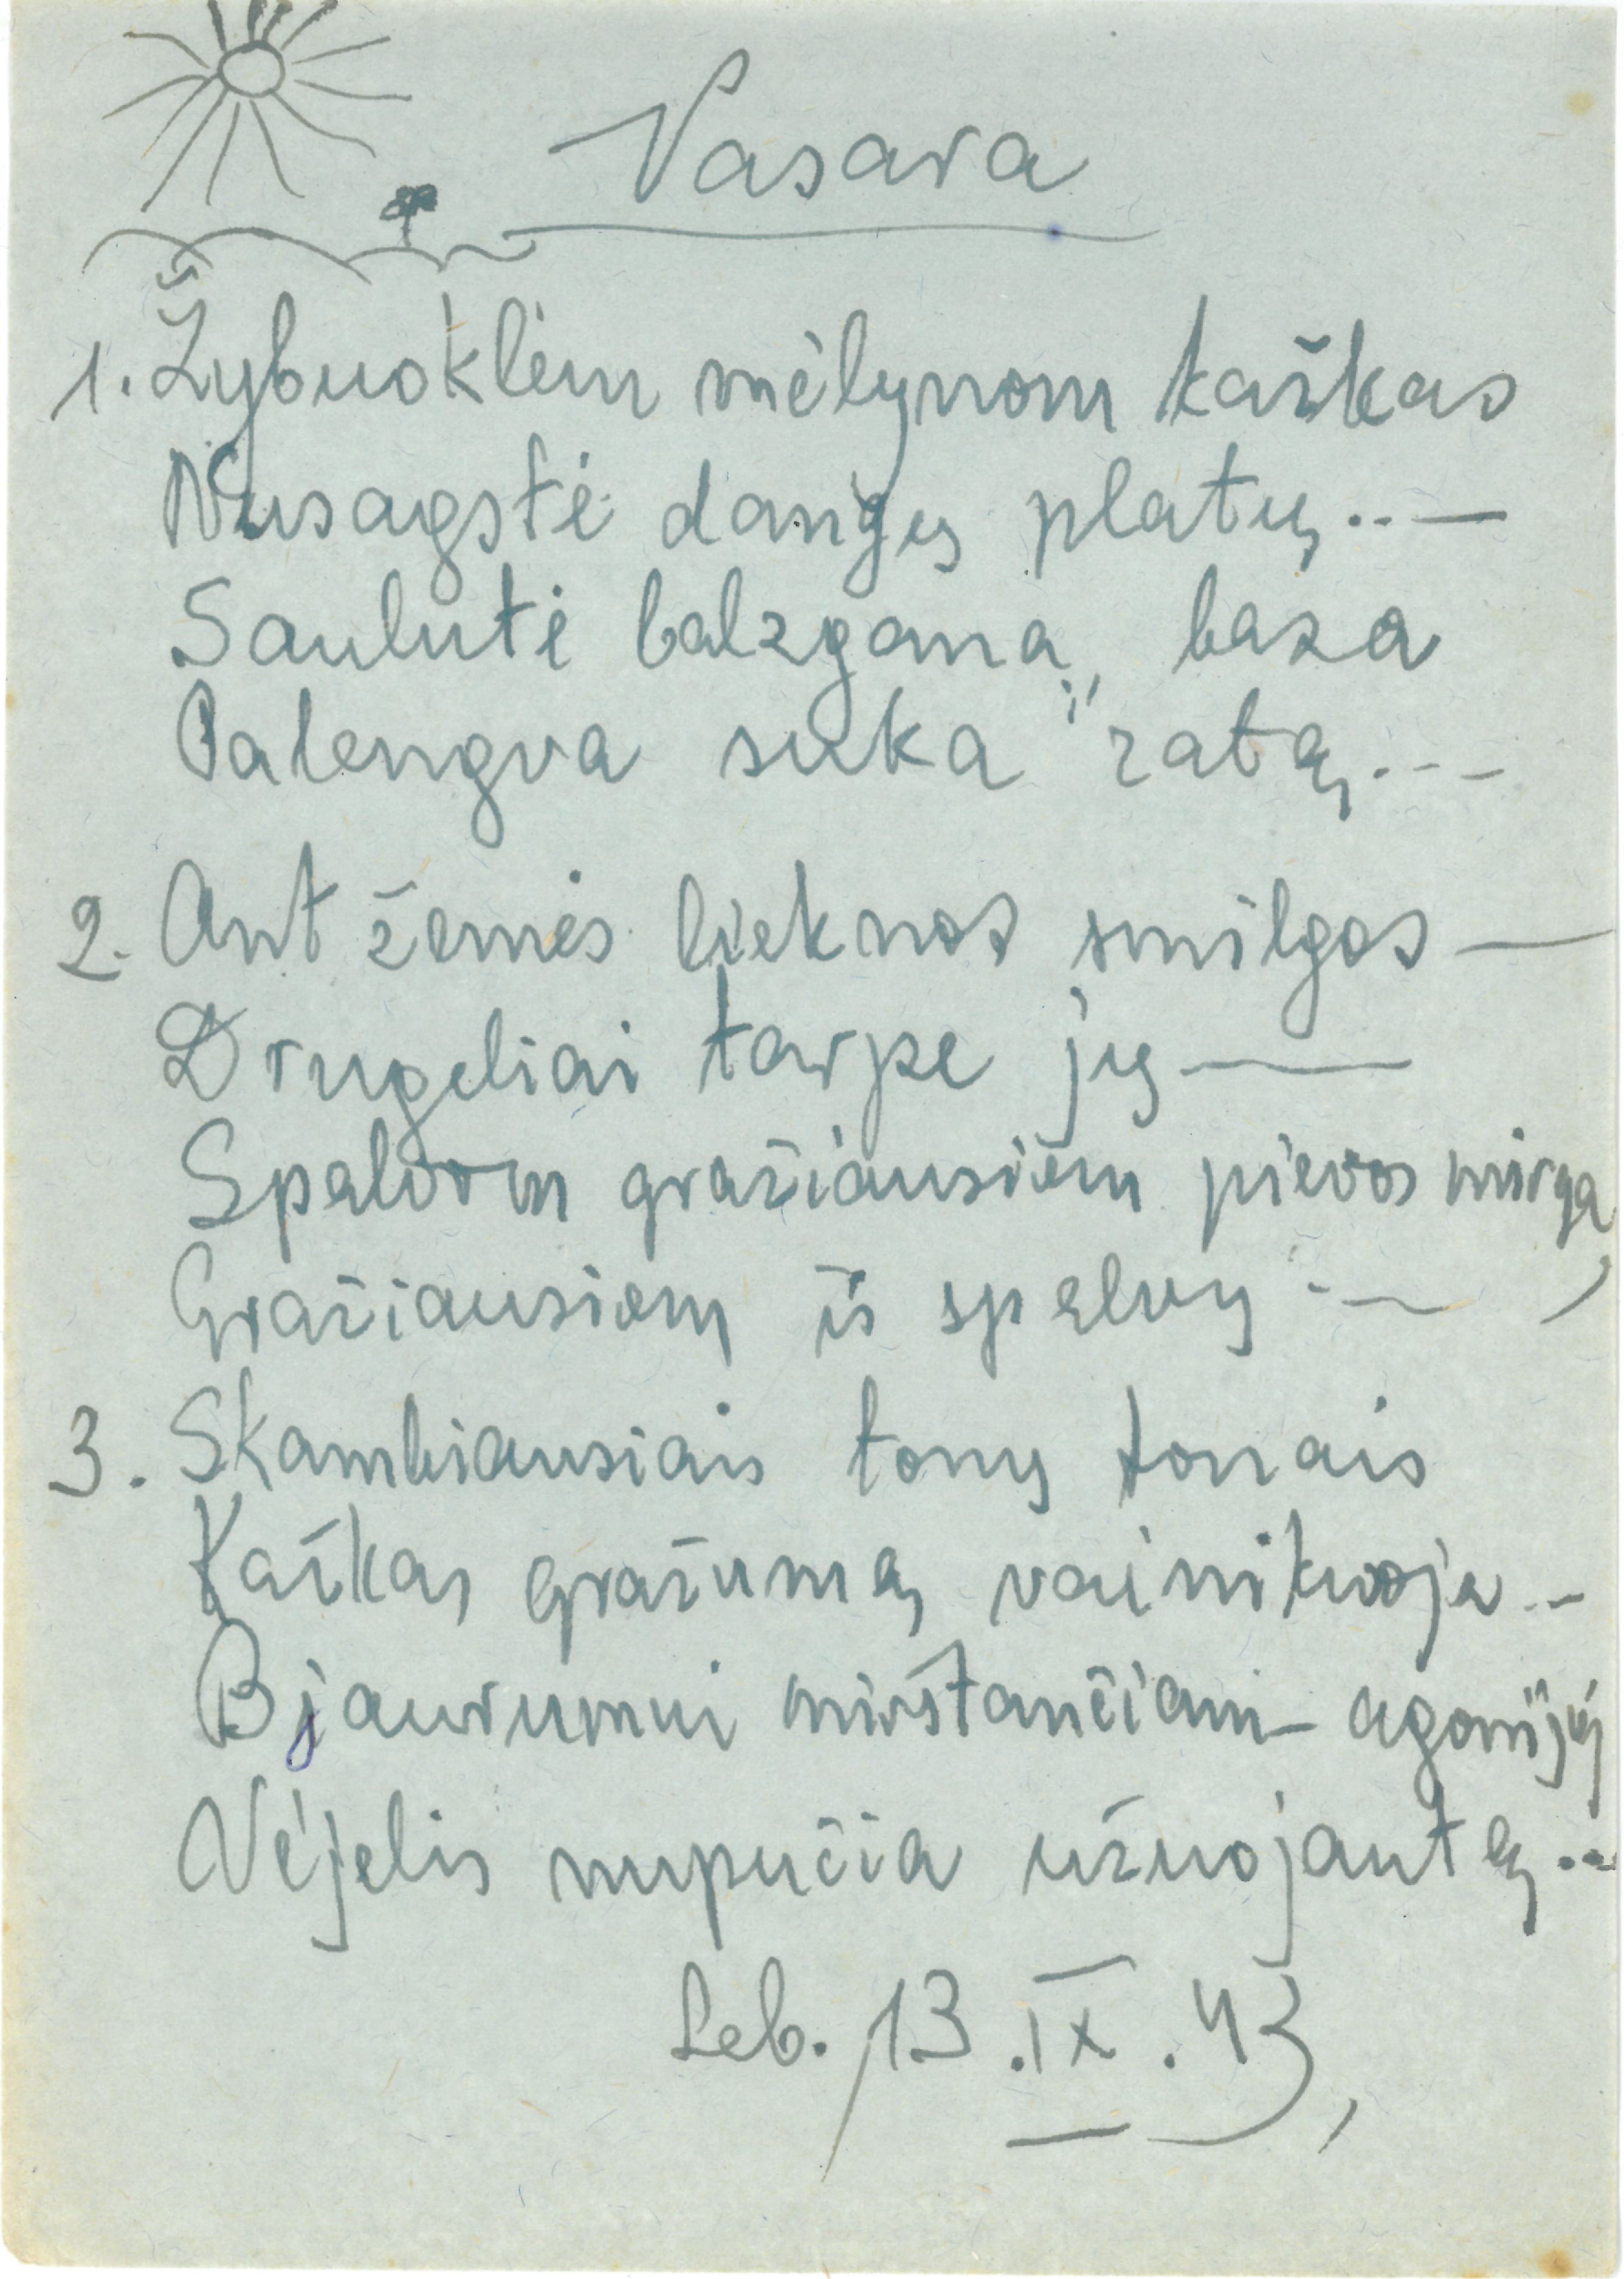 Vasara
1. Žybuoklėm mėlynom kažkas
Nusagstė dangų platų..—
Saulutė balzganą, basa
Palengva suka "ratą...
2. Ant žemės lieknos smilgos —
Drugeliai tarpe jų —
Spalvom gražiausiom pievos mirga,
Gražiausiom iš spalvų . —
3. Skambiausiais tonų tonais
Kažkas gražumą vainikuoja ..
Bjaurumui mirštančiam – agonijoj
Vėjelis nupučia užuojautą...
Leb. 13.IX.43,